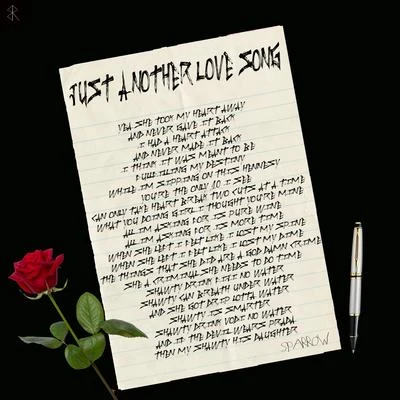 JUST ANOTHER LOVE SONG
YEA SHE TOOK MY HEART AWAY
AND NEVER GAVE IT BACK
I HAD A HEART ATTACK
AND NEVER MADE IT BACK
I THINK IT WAS MEANT TO BE
FULFILLING MY DESTINY
WHILE I'M SIPPING ON THIS HENNESSY
YOU'RE THE ONLY 10 I SEE
CAN ONLY TAKE HEART BREAK TWO CUTS AT A TIME
WHAT YOU DOING GIRL I THOUGHT YOU'RE MINE
ALL IM ASKING FOR IS PURE WINE
ALL IM ASKING FOR IS MORE TIME
WHEN SHE LEFT I FELT LIKE I LOST MY SPINE
WHEN SHE LEFT I FELT LIKE I LOST MY DIME
THE THINGS THAT SHE DID ARE A GOD DAMN CRIME
SHE A CRIMINAL SHE NEEDS TO DO TIME
SHAWTY DRINK FIJI NO WATER
SHAWTY CAN BREATH UNDER WATER
AND SHE GOT DRIP LOTTA WATER
SHAWTY IS SMARTER
SHAWTY DRINK VODI NO WATER
AND IF THE DEVIL WEARS PRADA
THEN MY SHAWTY HIS DAUGHTER
SPARROW